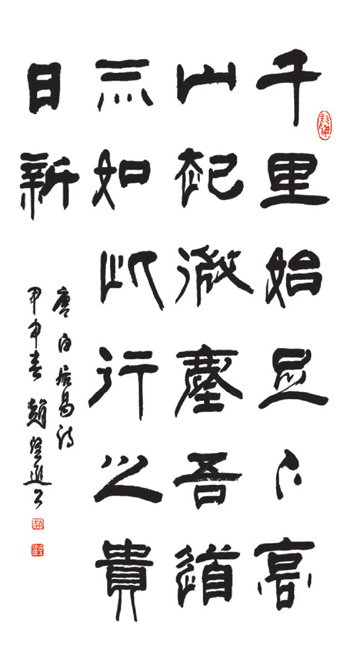 千里始足下高
山起微塵吾道
亦如此行之貴
日新
唐白居易詩
甲申春 趙望進